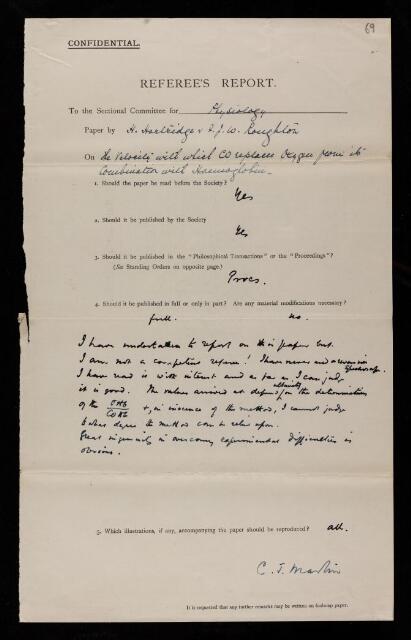 69
CONFIDENTIAL.
REFEREE'S REPORT.
To the Sectional Committee for Physiology
Paper by H. Hartridge & F. J. W. Roughton
On the Velocity with which CO replaces Oxygen from its
Combination with Haemoglobin.
1. Should the paper be read before the Society?
Yes
2. Should it be published by the Society
Yes
3. Should it be published in the "Philosophical Transactions" or the "Proceedings"?
(See Standing Orders on opposite page.)
Procs.
4. Should it be published in full or only in part? Are any material modifications necessary?
full. no.
I have undertaken to report on this paper but
I am not a competent referee! I have never used a reversion
spectroscope.
I have read it with interest and as far as I can judge
it is good. The values arrived at depend on the determination
of the O2Hb
COHb
, in ignorance of the method, I cannot judge
to what degree the method can be relied upon.
Great ingenuity in overcoming experimental difficulties is
obvious.
5. Which illustrations, if any, accompanying the paper should be reproduced? all.
C. J. Martin
It is requested that any further remarks may be written on foolscap paper.